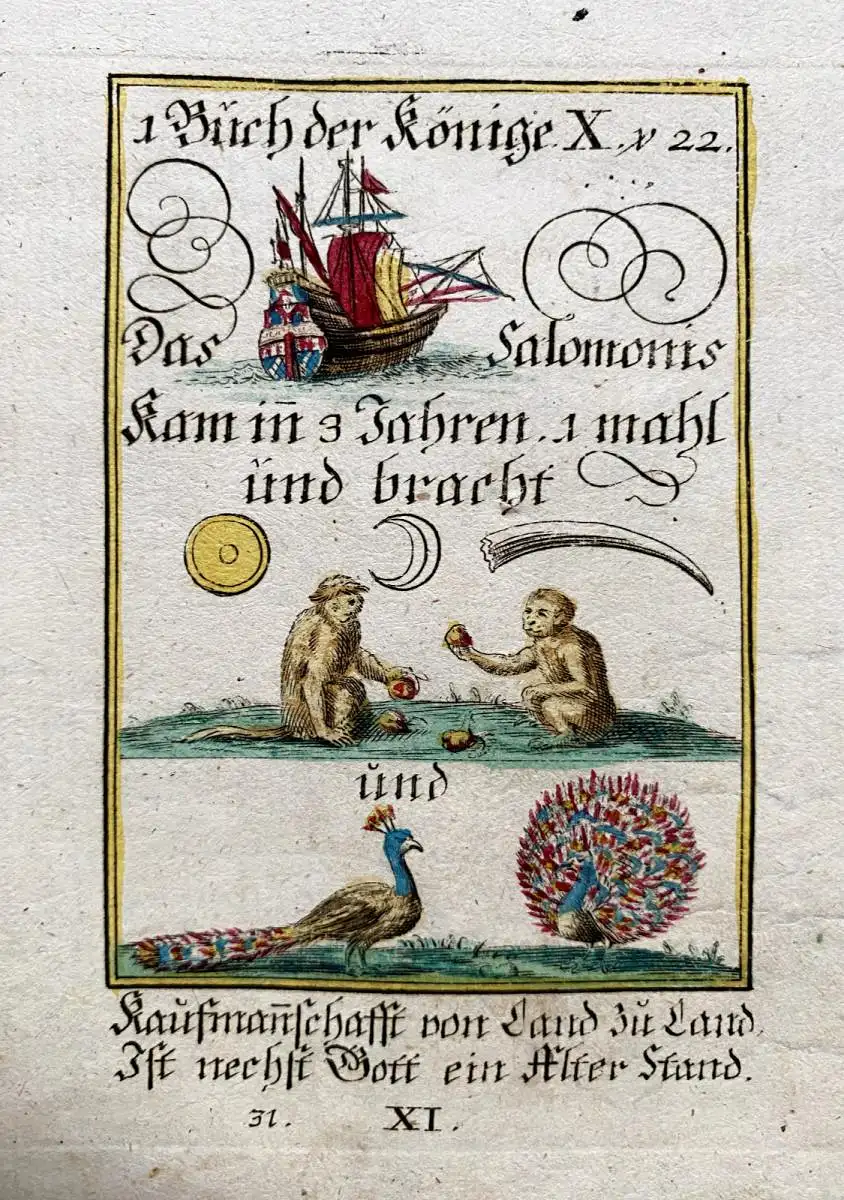 1 Bŭch der Könige. X. ℣ 22.
Das Salomonis
Kam in̄ 3 Jahren. 1 mahl
ŭnd bracht
ŭnd
Kaŭfman̄schafft von Land zŭ Land,
Ist nechst Gott ein Alter Stand.
31. XI.